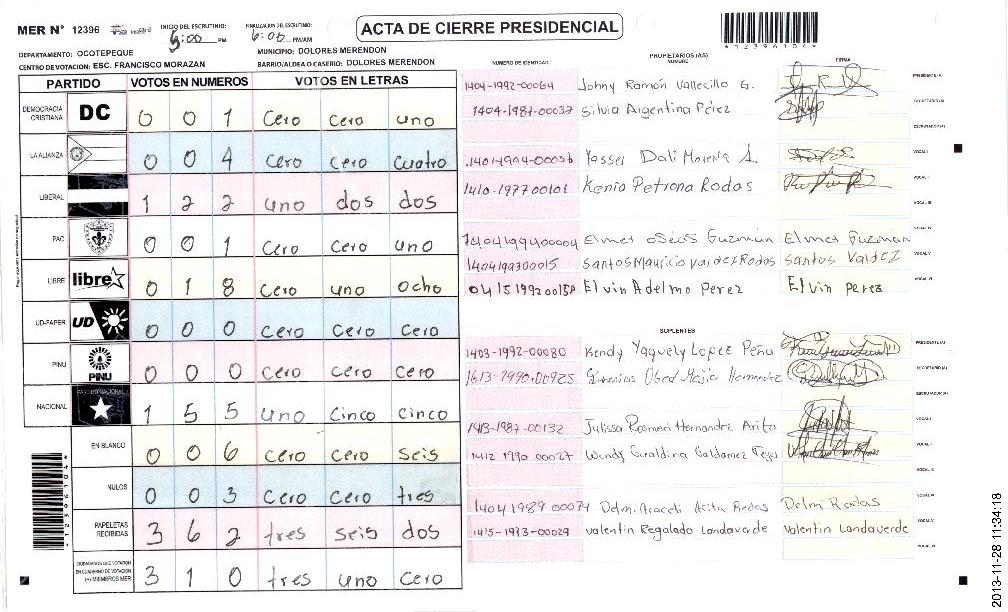 MER N° 12396
INICIO DEL ESCRUTINIO: 5:00 PM
FINALIZACION DEL ESCRUTINIO: 6:00 PM/AM
ACTA DE CIERRE PRESIDENCIAL
DEPARTAMENTO: OCOTEPEQUE
MUNICIPIO: DOLORES MERENDON
CENTRO DE VOTACION: ESC. FRANCISCO MORAZAN
BARRIO/ALDEA O CASERIO: DOLORES MERENDON
PARTIDO VOTOS EN NUMEROS VOTOS EN LETRAS
DEMOCRACIA CRISTIANA DC 0 0 1 cero cero uno
LA ALIANZA 0 0 4 cero cero cuatro
LIBERAL 1 2 2 uno dos dos
PAC 0 0 1 cero cero uno
LIBRE libre 0 1 8 cero uno ocho
UD-FAPER UD 0 0 0 cero cero cero
PINU PINU 0 0 0 cero cero cero
NACIONAL 1 5 5 uno cinco cinco
EN BLANCO 0 0 6 cero cero seis
NULOS 0 0 3 cero cero tres
PAPELETAS RECIBIDAS 3 6 2 tres seis dos
CIUDADANOS QUE VOTARON EN CUADERNO DE VOTACION (+) MIEMBROS MER 3 1 0 tres uno cero
PROPIETARIOS (AS)
NUMERO DE IDENTIDAD NOMBRE FIRMA
1404-1992-00064 Johny Ramón Vallecillo G. PRESIDENTE (A)
1404-1987-00037 Silvia Argentina Pérez SECRETARIO (A)
ESCRUTADOR (A)
Yosser Dali Morena A. VOCAL I
1410-197700101 Kenia Petrona Rodas VOCAL II
VOCAL III
Elmer oseas Guzmán Elmer Guzmán VOCAL IV
1404199300015 Santos Mauricio valdez Rodas Santos Valdez VOCAL V
Elvin Adelmo Perez Elvin perez VOCAL VI
SUPLENTES
1403-1992-00080 Kendy Yaquely Lopez Peña PRESIDENTE (A)
1613-1990-00925 Obed Mejia Hernandez SECRETARIO (A)
ESCRUTADOR (A)
1413-1987-00132 Julissa Rosmeri Hernandez Arita VOCAL I
1412 1990 00027 Wendy Geraldina Galdamez VOCAL II
VOCAL III
1404 1989 00074 Delmi Araceli Arita Rodas Delmi Rodas VOCAL IV
1415-1973-00029 valentin Regalado Landaverde Valentin Landaverde VOCAL V
VOCAL VI
2013-11-28 11:34:18